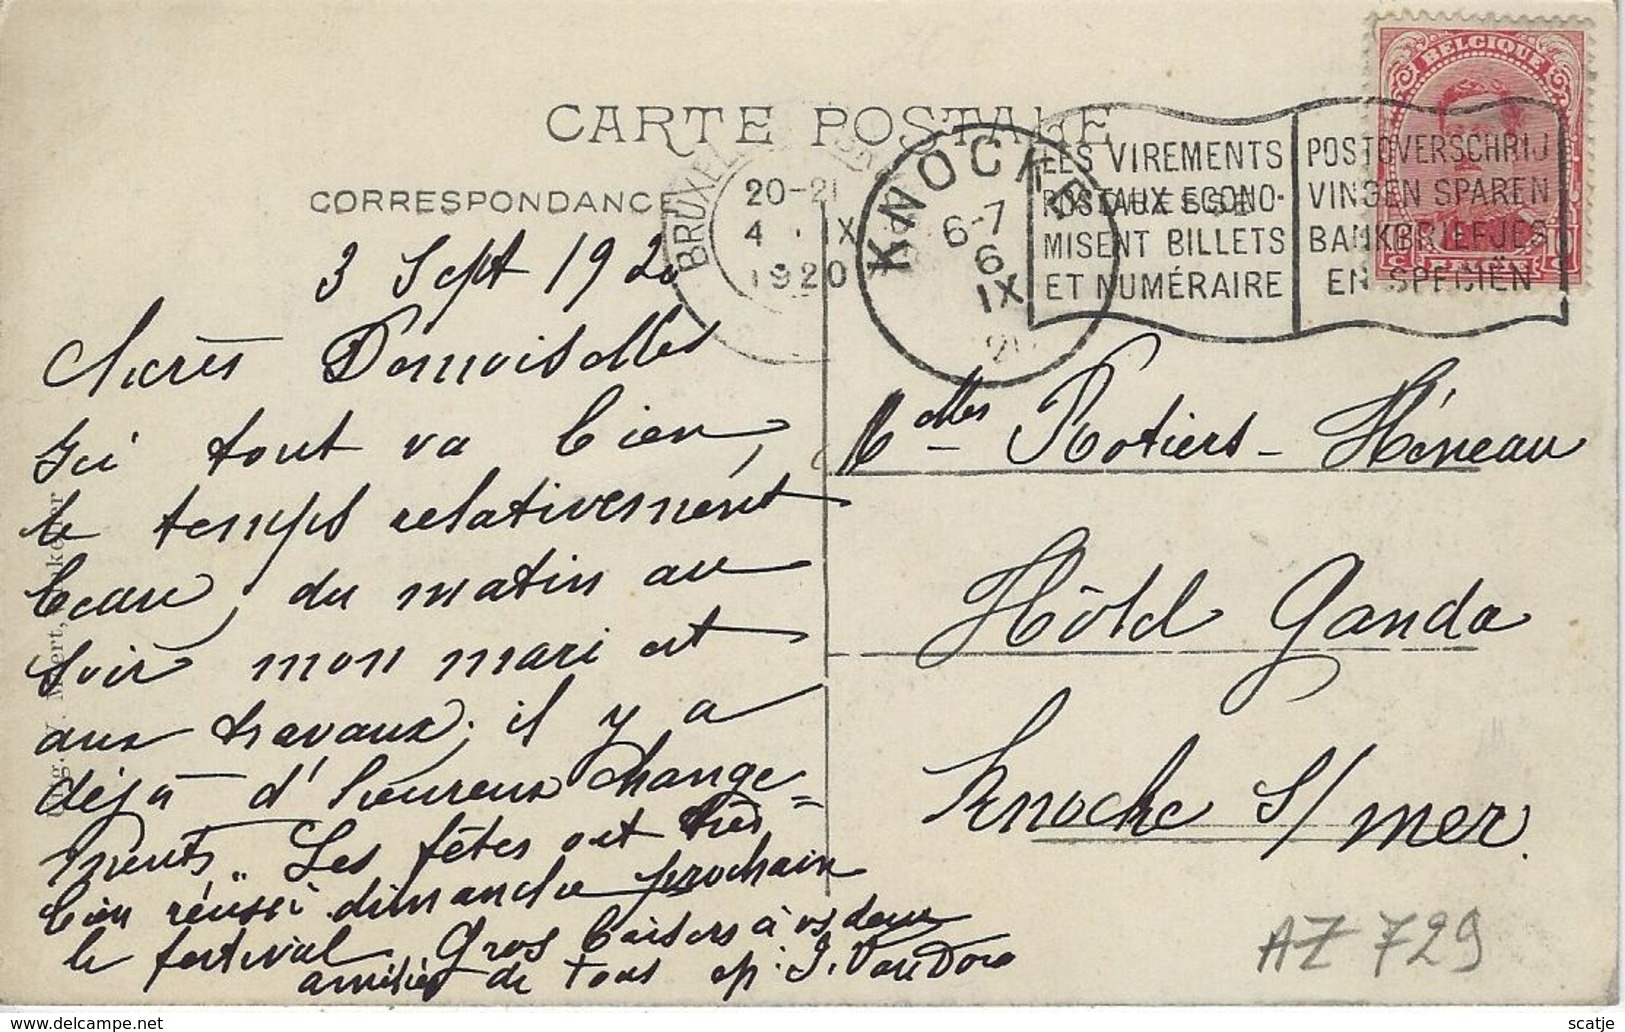 BELGIQUE
CARTE POSTALE
CORRESPONDANCE
BRUXEL
20-21
4 IX
1920
KNOCKE
6-7
6
IX
20
LES VIREMENTS
POSTAUX ECONO-
MISENT BILLETS
ET NUMÉRAIRE
POSTOVERSCHRIJ
VINGEN SPAREN
BANKBRIEFJES
EN SPECIËN
3 Sept 1920
Chères Demoiselles
Ici tout va bien,
le temps relativement
beau, du matin au
soir mon mari est
aux travaux; il y a
déjà d'heureux change=
ments. Les fêtes ont très
bien réussi dimanche prochain
le festival. Gros baisers à vs deux
amitiés de tous
Mdlles Rotiers - Héneau
Hôtel Ganda
Knocke s/mer.
AZ 729
© scatje
www.delcampe.net